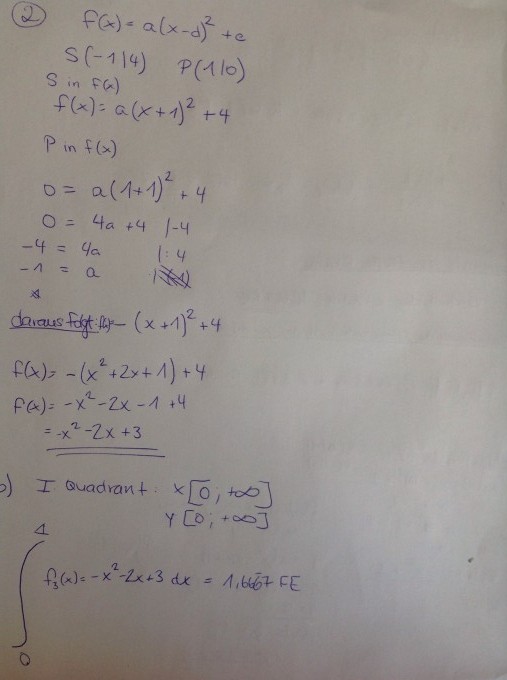 2 f(x) = a(x-d)² + e
S(-1|4) P(1|0)
S in f(x)
f(x) = a(x+1)² + 4
P in f(x)
0 = a(1+1)² + 4
0 = 4a + 4 |-4
-4 = 4a |:4
-1 = a
daraus folgt: f(x) = -(x+1)² + 4
f(x) = -(x² + 2x + 1) + 4
f(x) = -x² - 2x - 1 + 4
= -x² - 2x + 3
b) I Quadrant: x [0; +∞]
y [0; +∞]
1
∫ f₃(x) = -x² - 2x + 3 dx = 1,6667 FE
0